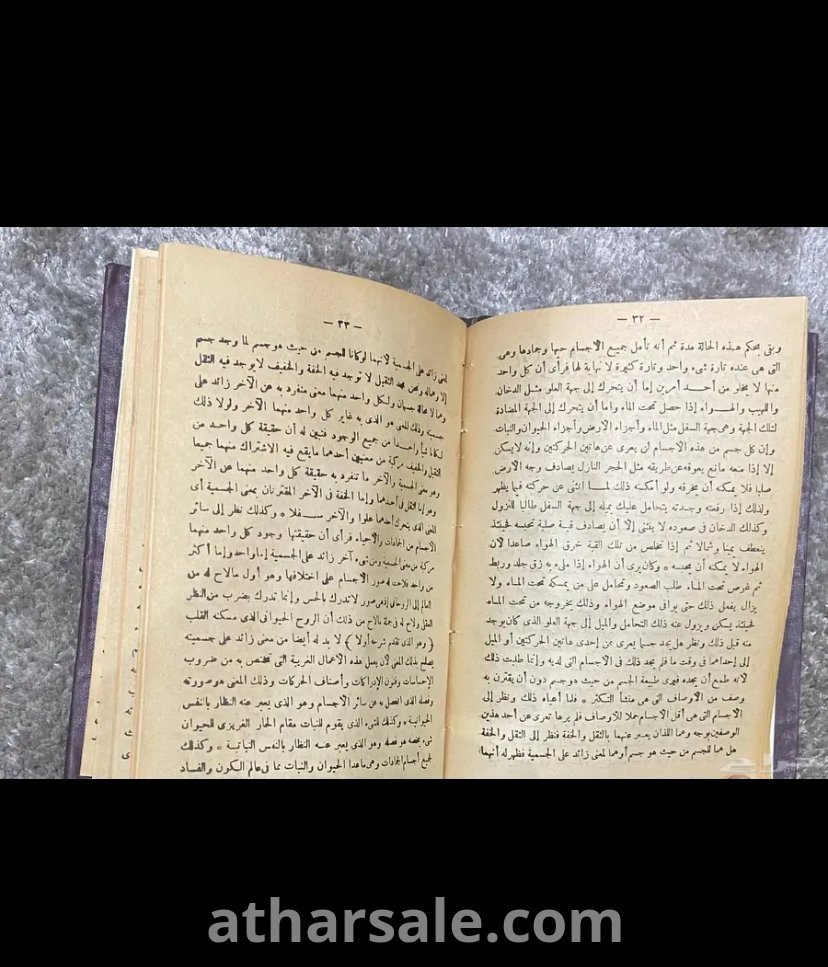 — ٣٢ —
وبقى بحكم هذه الحالة مدة ثم أنه تأمل جميع الأجسام حيها وجمادها وهى
التى هى عنده تارة شىء واحد وتارة كثيرة كثرة لا نهاية لها فرأى أن كل واحد
منها لا يخلو من أحد أمرين إما أن يتحرك إلى جهة العلو مثل الدخان
واللهيب والهواء إذا حصل تحت الماء واما أن يتحرك إلى الجهة المضادة
لتلك الجهة وهى جهة السفل مثل الماء وأجزاء الأرض وأجزاء الحيوان والنبات
وإن كل جسم من هذه الاجسام لن يعرى عن هاتين الحركتين وأنه لا يسكن
إلا إذا منعه مانع يعوقه عن طريقه مثل الحجر النازل يصادف وجه الأرض
صلبا فلا يمكنه أن يخرقه ولو أمكنه ذلك لما انثنى عن حركته فيما يظهر
ولذلك إذا رفعته وجدته يتحامل عليك بميله إلى جهة السفل طالبا للنزول
وكذلك الدخان فى صعوده لا ينثنى إلا أن يصادف قبة صلبة تحبسه فحينئذ
ينعطف يمينا وشمالا ثم إذا تخلص من تلك القبة خرق الهواء صاعدا لان
الهواء لا يمكنه أن يحبسه * وكان يرى أن الهواء إذا ملىء به زق جلد وربط
ثم غوص تحت الماء طلب الصعود وتحامل على من يمسكه تحت الماء ولا
يزال يفعل ذلك حتى يوافى موضع الهواء وذلك بخروجه من تحت الماء
فحينئذ يسكن ويزول عنه ذلك التحامل والميل إلى جهة العلو الذى كان يوجد
منه قبل ذلك ونظر هل يجد جسما يعرى عن إحدى هاتين الحركتين أو الميل
إلى إحداهما فى وقت ما فلم يجد ذلك فى الاجسام التى لديه وإنما طلبت ذلك
لانه طمع أن يجده فيرى طبيعة الجسم من حيث هو جسم دون أن يقترن به
وصف من الاوصاف التى هى منشأ التكثر * فلما أعياه ذلك ونظر إلى
الاجسام التى هى أقل الاجسام حملا للاوصاف فلم يرها تعرى عن أحد هذين
الوصفين بوجه وهما اللذان يعبر عنهما بالثقل والخفة فنظر إلى الثقل والخفة
هل هما للجسم من حيث هو جسم أو هما لمعنى زائد على الجسمية فظهر له أنهما
— ٣٣ —
لمعنى زائد على الجسمية لانهما لو كانا للجسم من حيث هو جسم لما وجد جسم
إلا وهما له ونحن نجد الثقيل لا توجد فيه الخفة والخفيف لا يوجد فيه الثقل
وهما لا محالة جسمان ولكل واحد منهما معنى منفرد به عن الآخر زائد على
جسميته وذلك المعنى هو الذى به غاير كل واحد منهما الآخر ولولا ذلك
لكانا شيأ واحدا من جميع الوجوه فتبين له أن حقيقة كل واحد من
الثقيل والخفيف مركبة من معنيين أحدهما ما يقع فيه الاشتراك منهما جميعا
وهو معنى الجسمية والآخر ما تنفرد به حقيقة كل واحد منهما عن الآخر
وهو إما الثقل فى أحدهما وإما الخفة فى الآخر المقترنان بمعنى الجسمية أى
المعنى الذى يتحرك أحدهما علوا والآخر سفلا * وكذلك نظر إلى سائر
الاجسام من الجمادات والاحياء فرأى أن حقيقتها وجود كل واحد منهما
مركبة من معنى الجسمية ومن شىء آخر زائد على الجسمية إما واحد وإما أكثر
من واحد فلاحت له صور الاجسام على اختلافها وهو أول ما لاح له من
العالم الروحانى إذ هى صور لا تدرك بالحس وإنما تدرك بضرب من النظر
العقلى ولاح له فى جملة ما لاح من ذلك أن الروح الحيوانى الذى مسكنه القلب
( وهو الذى تقدم شرحه أولا ) لا بد له أيضا من معنى زائد على جسميته
يصلح بذلك المعنى لان يعمل هذه الأعمال الغريبة التى تختص به من ضروب
الاحساسات وفنون الإدراكات وأصناف الحركات وذلك المعنى هو صورته
وفصله الذى انفصل به عن سائر الاجسام وهو الذى يعبر عنه النظار بالنفس
الحيوانية * وكذلك للشىء الذى يقوم للنبات مقام الحار الغريزى للحيوان
شىء يخصه هو فصله وهو الذى يعبر عنه النظار بالنفس النباتية * وكذلك
لجميع أجسام الجمادات وهى ما عدا الحيوان والنبات مما فى عالم الكون والفساد
atharsale.com